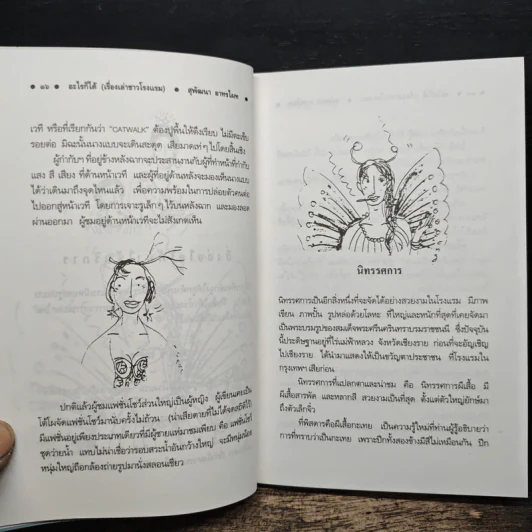 ● ๑๖ ● อะไรก็ได้ (เรื่องเล่าชาวโรงแรม) ● สุพัฒนา อาทรไผท ●
เวที หรือที่เรียกกันว่า "CATWALK" ต้องปูพื้นให้ตึงเรียบ ไม่มีตะเข็บ
รอยต่อ มิฉะนั้นนางแบบจะเดินสะดุด เสียมาดเท่ๆ ไปโดยสิ้นเชิง
ผู้กำกับฯ ที่อยู่ข้างหลังฉากจะประสานงานกับผู้ที่ทำหน้าที่กำกับ
แสง สี เสียง ที่ด้านหน้าเวที และผู้ที่อยู่ด้านหลังจะมองเห็นนางแบบ
ได้ว่าเดินมาถึงจุดไหนแล้ว เพื่อความพร้อมในการปล่อยตัวคนต่อ
ไปออกสู่หน้าเวที โดยการเจาะรูเล็กๆ ไว้บนหลังฉาก และมองลอด
ผ่านออกมา ผู้ชมอยู่ด้านหน้าเวทีจะไม่สังเกตเห็น
ปกติแล้วผู้ชมแฟชั่นโชว์ส่วนใหญ่เป็นผู้หญิง ผู้เขียนเคยเป็น
โต้โผจัดแฟชั่นโชว์มานับครั้งไม่ถ้วน (น่าเสียดายที่ไม่ได้จดสถิติไว้)
มีแฟชั่นอยู่เพียงประเภทเดียวที่มีผู้ชายแห่มาชมเพียบ คือ แฟชั่นโชว์
ชุดว่ายน้ำ แทบไม่น่าเชื่อว่ารอบสระน้ำอันกว้างใหญ่ จะมีหนุ่มน้อย
หนุ่มใหญ่ถือกล้องถ่ายรูปมานั่งสลอนเชียว
นิทรรศการ
นิทรรศการเป็นอีกสิ่งหนึ่งที่จะจัดได้อย่างสวยงามในโรงแรม มีภาพ
เขียน ภาพปั้น รูปหล่อด้วยโลหะ ที่ใหญ่และหนักที่สุดที่เคยจัดมา
เป็นพระบรมรูปของสมเด็จพระศรีนครินทราบรมราชชนนี ซึ่งปัจจุบัน
นี้ประดิษฐานอยู่ที่ไร่แม่ฟ้าหลวง จังหวัดเชียงราย ก่อนที่จะอัญเชิญ
ไปเชียงราย ได้นำมาแสดงให้เป็นขวัญตาประชาชน ที่โรงแรมใน
กรุงเทพฯ เสียก่อน
นิทรรศการที่แปลกตาและน่าชม คือ นิทรรศการผีเสื้อ มี
ผีเสื้อสารพัด และหลากสี สวยงามเป็นที่สุด ตั้งแต่ตัวใหญ่ยักษ์มา
ถึงตัวเล็กจิ๋ว
ที่พิสดารคือผีเสื้อกะเทย เป็นความรู้ใหม่ที่ท่านผู้รู้อธิบายว่า
การที่ทราบว่าเป็นกะเทย เพราะปีกทั้งสองข้างมีสีไม่เหมือนกัน ปีก